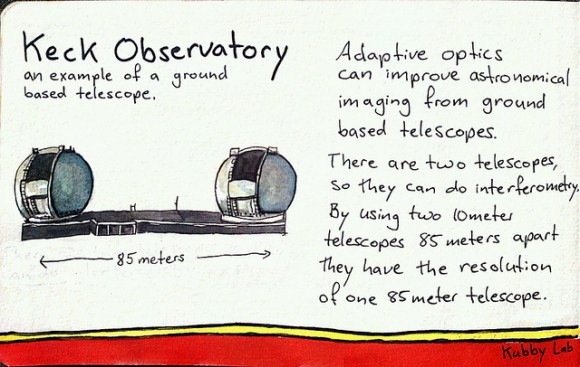 Keck Observatory
an example of a ground
based telescope.
85 meters
Adaptive optics
can improve astronomical
imaging from ground
based telescopes.
There are two telescopes,
so they can do interferometry.
By using two 10meter
telescopes 85 meters apart
they have the resolution
of one 85 meter telescope.
Kubby Lab